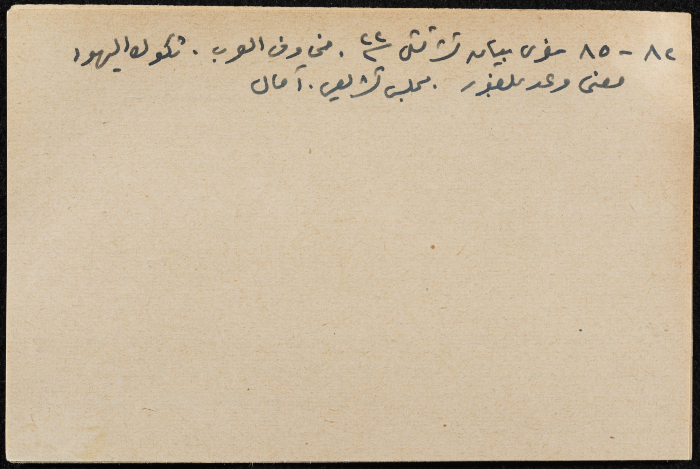 ٨٢ – ٨٥ مغزى بيان تشرتشل ٢٢ . مخاوف العرب . شكوك اليهود
معنى وعد بلفور . مجلس تشريعي . آمال